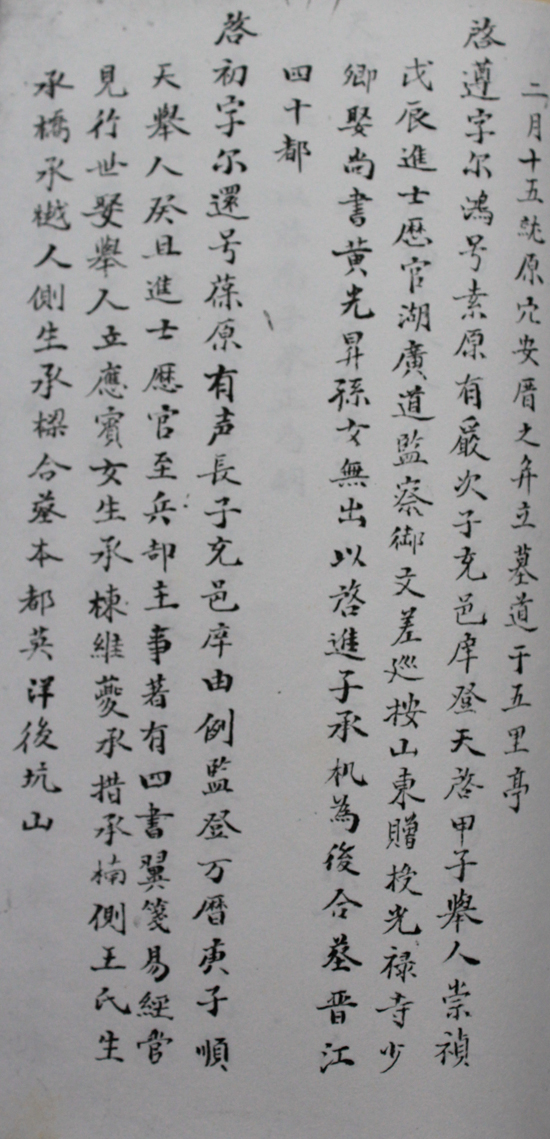 二月十五就原穴安厝之弁立墓道于五里亭
啓遵字尔鴻号素原有嚴次子充邑庠登天啓甲子舉人崇禎
戊辰進士歷官湖廣道監察御史差巡按山東贈授光禄寺少
卿娶尚書黄光昇孫女無出以啓進子承机為後合墓晋江
四十都
啓初字尔還号葆原有声長子充邑庠由例監登万曆庚子順
天舉人癸丑進士歷官至兵部主事著有四書翼箋易經管
見行世娶舉人立應賓女生承棟維夔承措承楠側王氏生
承橋承樾人側生承樑合墓本都英洋後坑山